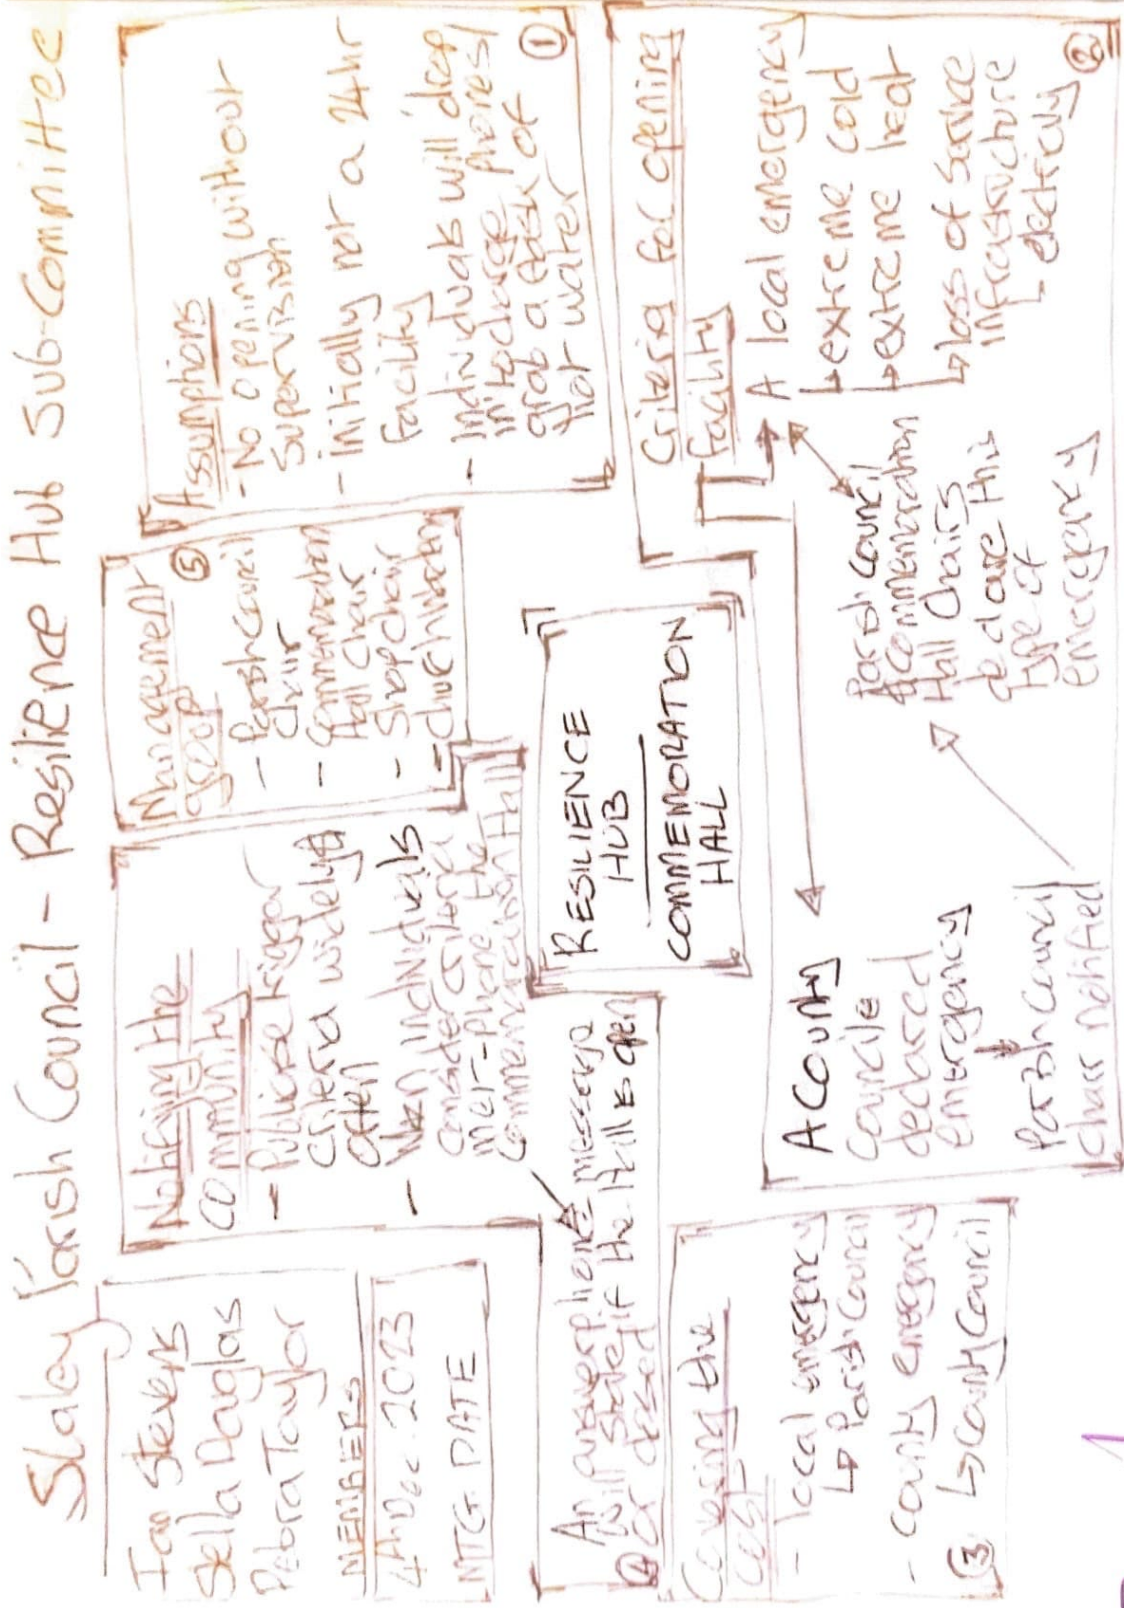 Slaley Parish Council - Resilience Hub Sub-Committee
Ian Stevens
Stella Daglas
Debra Taylor
MEMBERS
4th Dec. 2023
MTG. DATE
Notifying the
community
- Publicise trigger
criteria widely &
often
- When individuals
consider criteria
met - phone the
Commemoration Hall
An answerphone message
will state if the Hall is open
or closed
4
Management
group
5
- Parish Council
Chair
- Commemoration
Hall Chair
- Shop chair
- Church
Assumptions
- No opening without
supervision
- Initially not a 24hr
facility
- Individuals will drop
in to charge phones/
grab a flask of
hot water
1
RESILIENCE
HUB
COMMEMORATION
HALL
Criteria for opening
facility
A local emergency
extreme cold
extreme heat
loss of service
infrastructure
electricity
2
Parish Council
& Commemoration
Hall Chairs
declare this
type of
emergency
A County
Council
declared
emergency
Parish Council
Chair notified
Covering the
cost
- local emergency
Parish Council
- County emergency
County Council
3